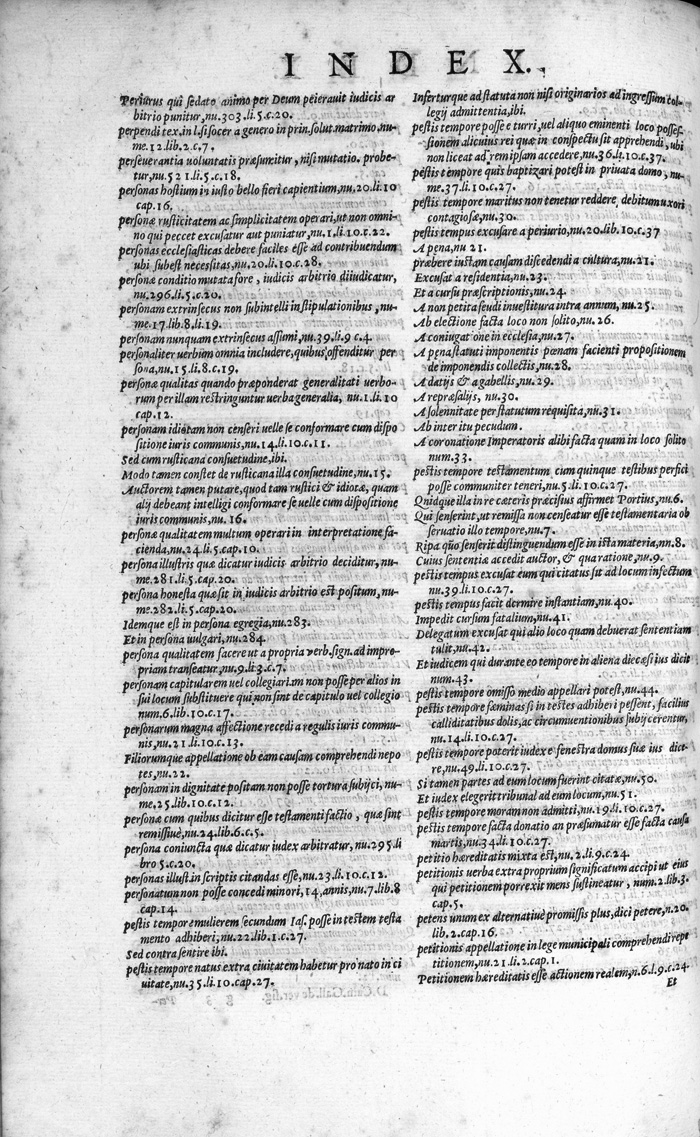 INDEX.
Periurus qui sedato animo per Deum peierauit iudicis ar
bitrio punitur, nu.303.li.5.c.20.
perpendi tex.in l.si socer a genero in prin.solut.matrimo, nu-
me.12.lib.2.c.7.
perseuerantia uoluntatis præsumitur, nisi mutatio. probe-
tur, nu.521.li.5.c.18.
personas hostium in iusto bello fieri capientium, nu.20.li.10
cap.16.
personæ rusticitatem ac simplicitatem operari, ut non omni-
no qui peccet excusatur aut puniatur, nu.1.li.10.c.22.
personas ecclesiasticas debere faciles esse ad contribuendum
ubi subest necessitas, nu.20.li.10.c.28.
personæ conditio mutata fore, iudicis arbitrio diiudicatur,
nu.296.li.5.c.20.
personam extrinsecus non subintelli in stipulationibus, nu-
me.17.lib.8.li.19.
personam nunquam extrinsecus assumi, nu.39.li.9 c.4.
personaliter uerbum omnia includere, quibus offenditur per
sona, nu.15.li.8.c.19.
personæ qualitas quando præponderat generalitati uerbo-
rum per illam restringuntur uerba generalia, nu.1.li.10
cap.12.
personam idiotam non censeri uelle se conformare cum dispo
sitione iuris communis, nu.14.li.10.c.11.
Sed cum rusticana consuetudine, ibi.
Modo tamen constet de rusticana illa consuetudine, nu.15.
Auctorem tamen putare, quod tam rustici & idiotæ, quam
alij debeant intelligi conformare se uelle cum dispositione
iuris communis, nu. 16.
personæ qualitatem multum operari in interpretatione fa-
cienda, nu.24.li.5.cap.10.
persona illustris quæ dicatur iudicis arbitrio deciditur, nu-
me.281.li.5.cap.20.
persona honesta quæ sit in iudicis arbitrio est positum, nu-
me.282.li.5.cap.20.
Idemque est in persona egregia, nu.283.
Et in persona uulgari, nu.284.
persona qualitatem facere ut a propria verb.sign.ad impro-
priam transeatur, nu.9.li.3.c.7.
personam capitularem uel collegiariam non posse per alios in
sui locum substituere qui non sint de capitulo uel collegio
num.6.lib.10.c.17.
personarum magna affectione recedi a regulis iuris commu-
nis, nu.21.li.10.c.13.
Filiorumque appellatione ob eam causam comprehendi nepo
tes, nu.22.
personam in dignitate positam non posse tortura subijci, nu-
me.25.lib.10.c.12.
personæ cum quibus dicitur esse testamenti factio, quæ sint
remissiuè, nu.24.lib.6.c.5.
persona coniuncta quæ dicatur iudex arbitratur, nu.295.li
bro 5.c.20.
personas illust.in scriptis citandas esse, nu.23.li.10.c.12.
personatum non posse concedi minori, 14, annis, nu.7.lib.8
cap.14.
pestis tempore mulierem secundum Ias. posse in testem testa
mento adhiberi, nu.22.lib.1.c.27.
Sed contra sentire ibi.
pestis tempore natus extra ciuitatem habetur pro nato in ci
uitate, nu.35.li.10.cap.27.
Inferturque ad statuta non nisi originarios ad ingressum col-
legij admittentia, ibi.
pestis tempore posse e turri, uel aliquo eminenti loco posses-
sionem alicuius rei quæ in conspectu sit apprehendi, ubi
non liceat ad rem ipsam accedere, nu.36.li.10.c.37.
pestis tempore quis baptizari potest in priuata domo, nu-
me.37.li.10.c.27.
pestis tempore maritus non tenetur reddere debitum uxori
contagiosæ, nu.30.
pestis tempus excusare a periurio, nu.20.lib.10.c.37
A pena, nu 21.
præbere iustam causam discedendi a cultura, nu.21.
Excusat a residentia, nu.23.
Et a cursu præscriptionis, nu.24.
A non petita feudi inuestitura intra annum, nu.25.
Ab electione facta loco non solito, nu.26.
A coniugatione in ecclesia, nu.27.
A pena statuti imponentis pœnam facienti propositionem
de imponendis collectis, nu.28.
A datijs & agabellis, nu.29.
A represalijs, nu.30.
A solennitate per statutum requisita, nu.31.
Ab interitu pecudum.
A coronatione Imperatoris alibi facta quam in loco solito
num.33.
pestis tempore testamentum cum quinque testibus perfici
posse communiter teneri, nu.5.li.10.c.27.
Quidque illa in re cæteris præcisius affirmet Portius, nu.6.
Qui senserint, ut remissa non censeatur esse testamentaria ob
seruatio illo tempore, nu.7.
Ripa quo senserit distinguendum esse in ista materia, nu.8.
Cuius sententiæ accedit auctor, & qua ratione, nu.9.
pestis tempus excusat eum qui citatus sit ad locum infectum
nu.39.li.10.c.27.
pestis tempus facit dormire instantiam, nu.40.
Impedit cursum fatalium, nu.41.
Delegatum excusat qui alio loco quam debuerat sententiam
tulit, nu.42.
Et iudicem qui durante eo tempore in aliena diœcesi ius dicit
num.43.
pestis tempore omisso medio appellari potest, nu.44.
pestis tempore fæminas si in testes adhiberi possent, facilius
calliditatibus dolis, ac circumuentionibus subijcerentur,
nu.14.li.10.c.27.
pestis tempore poterit iudex e fenestra domus suæ ius dice-
re, nu.49.li.10.c.27.
Si tamen partes ad eum locum fuerint citatæ, nu.50.
Et iudex elegerit tribunal ad eum locum, nu.51.
pestis tempore moram non admitti, nu.19.li.10.c.27.
pestis tempore facta donatio an præsumatur esse facta causa
martis, nu.34.li.10.c.27.
petitio hæreditatis mixta est, nu.2.li.9.c.24.
petitionis uerba extra proprium significatum accipi ut eius
qui petitionem porrexit mens sustineatur, num.2.lib.3.
cap.5.
petens unum ex alternatiuè promissis plus, dici petere, n.20.
lib.2.cap.16.
petitionis appellatione in lege municipali comprehendi repe
titionem, nu.21.li.2.cap.1.
Petitionem hæreditatis esse actionem realem, n.6.l.9.c.24.
Et